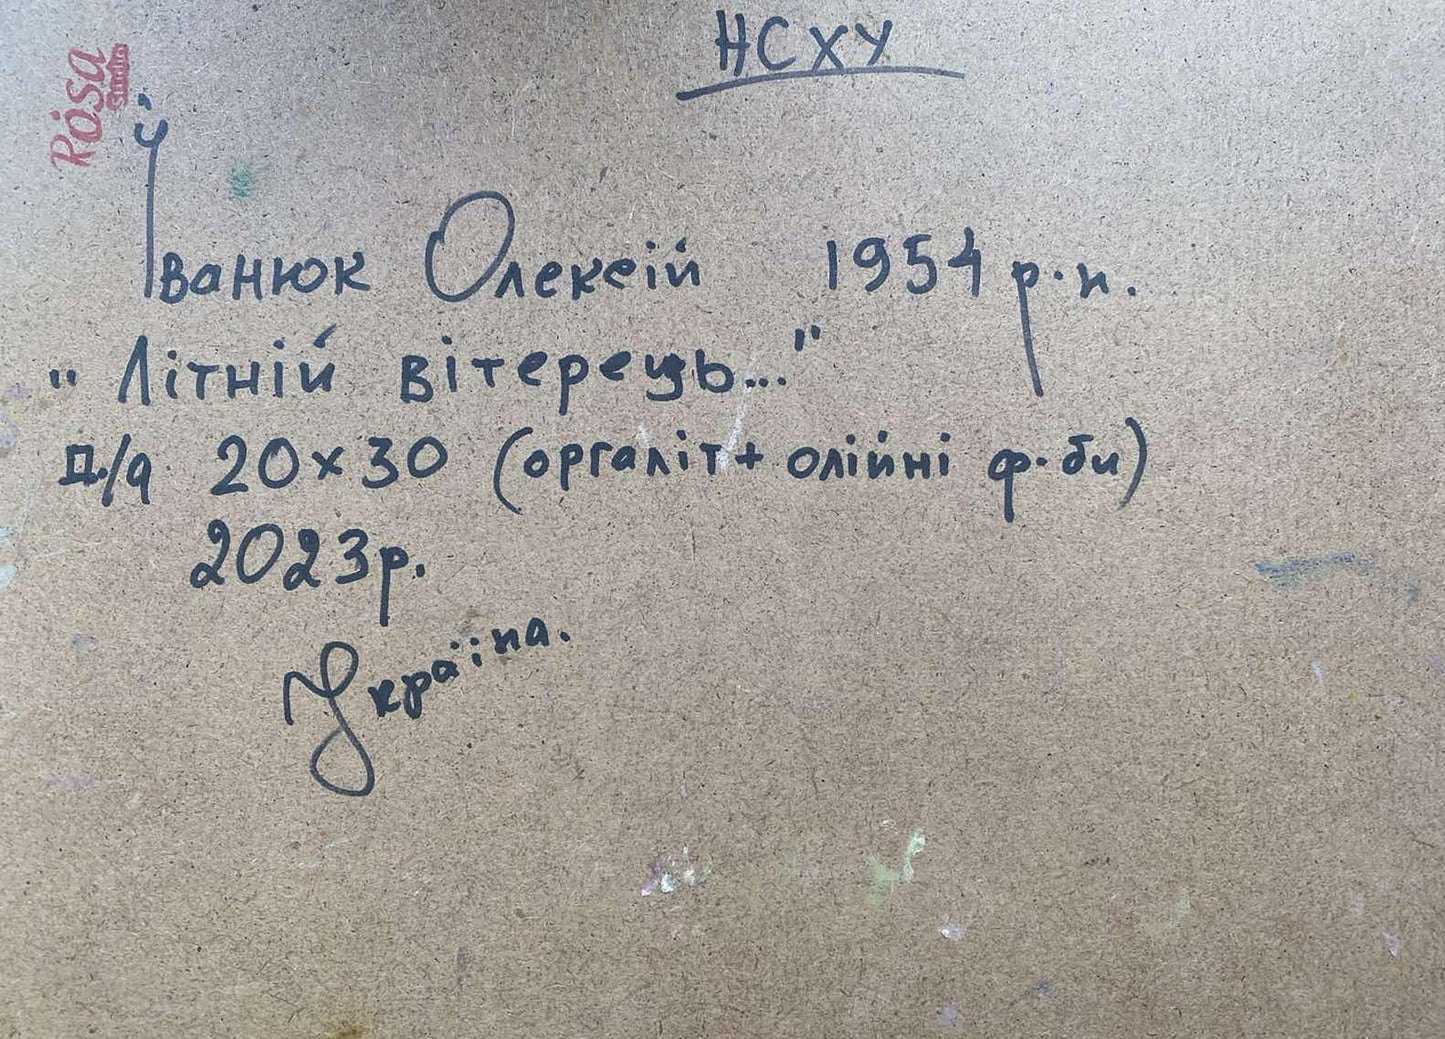 НСХУ
Rosa
Studio
Іванюк Олексій 1954 р.н.
"Літній вітерець..."
20х30 (оргаліт+ олійні ф-би)
2023р.
Україна.